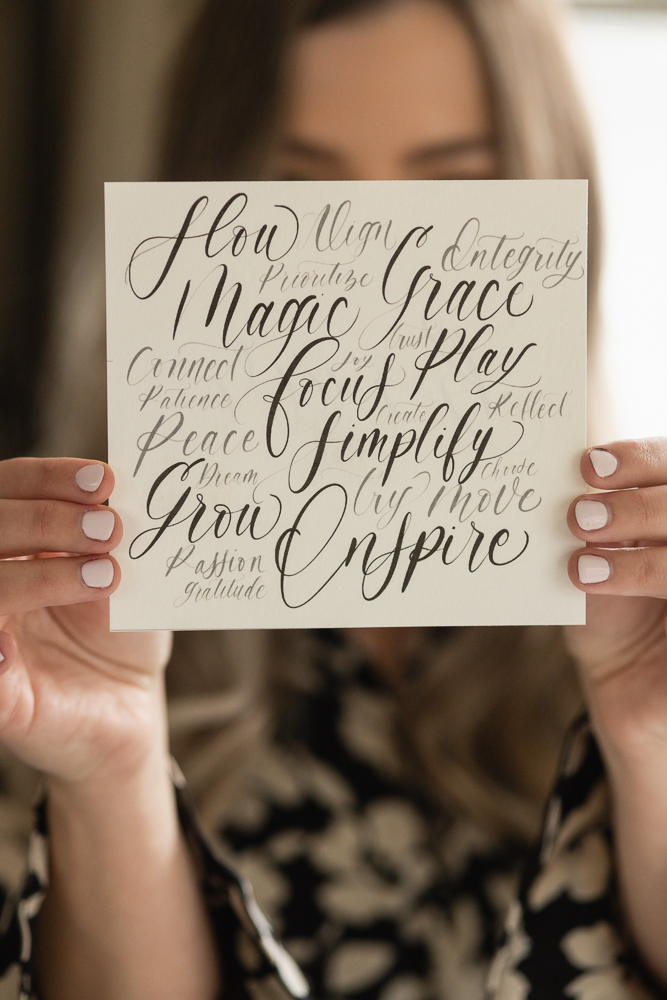 Flow Align Integrity
Prioritize
Magic Grace
trust
Connect Joy Play
Patience focus Create Reflect
Peace Simplify
Dream Choose
Grow Try Move
Inspire
Passion
gratitude